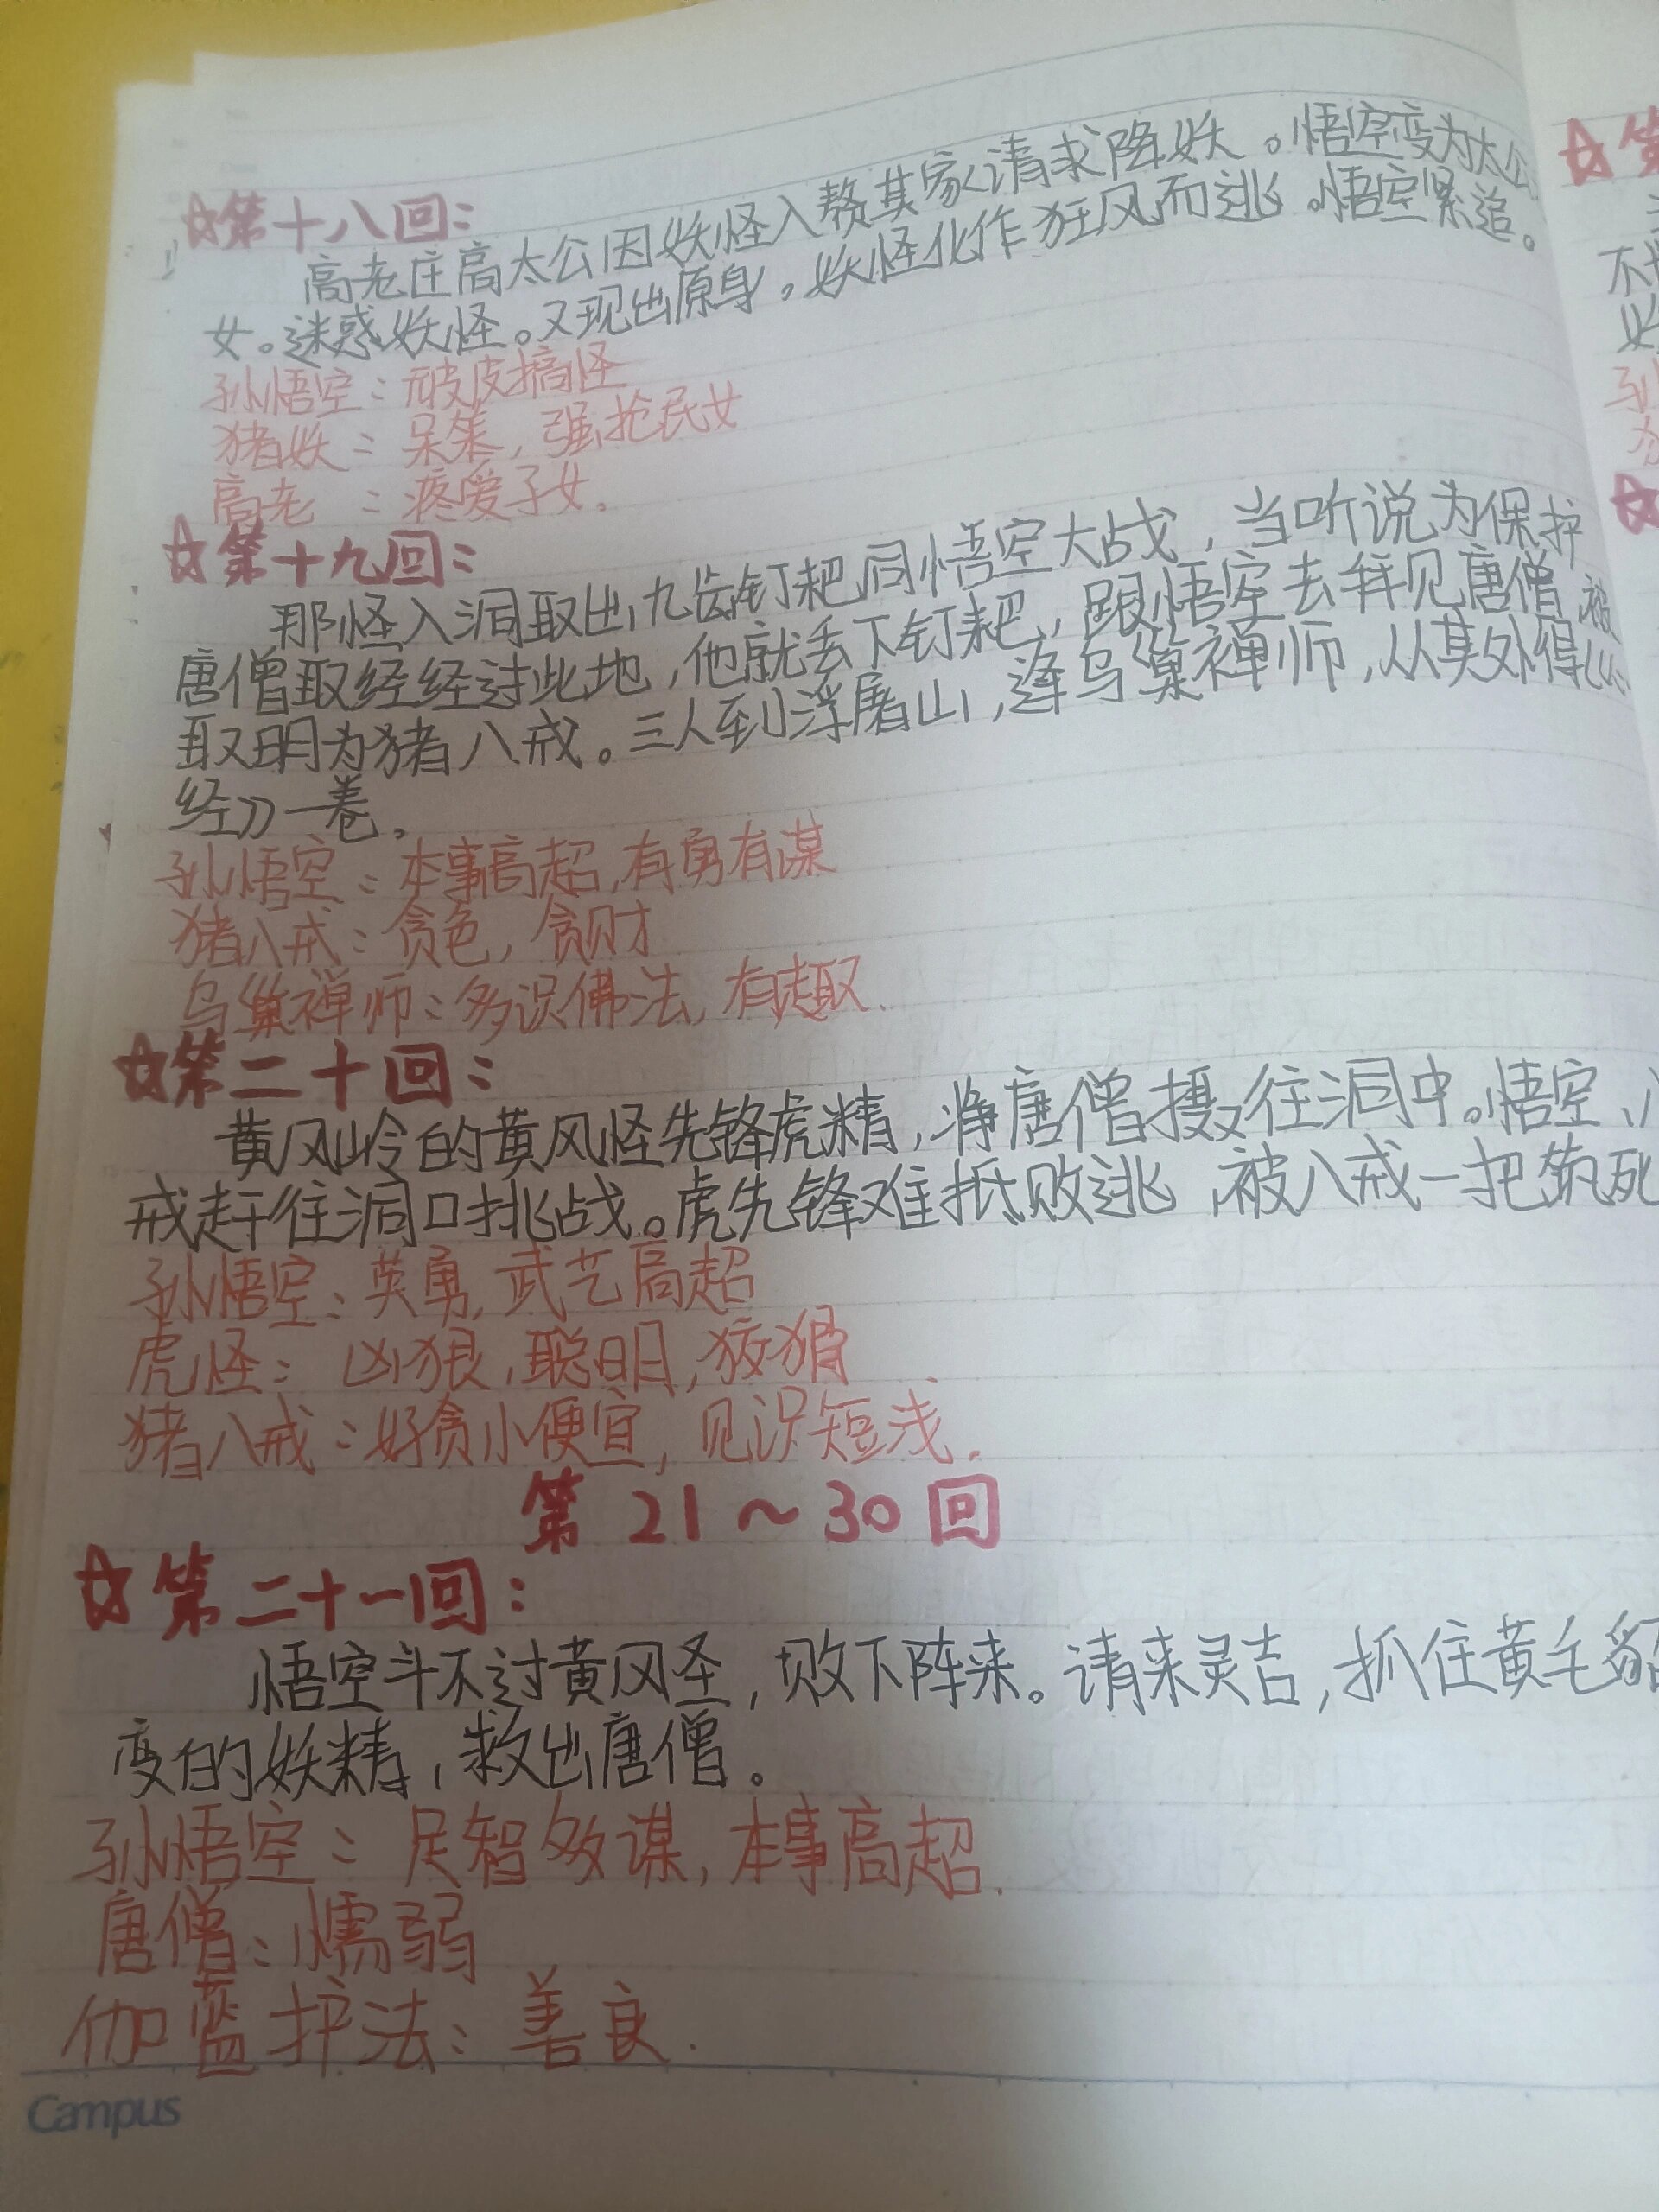 ☆第十八回：
高老庄高太公因妖怪入赘其家请求降妖。悟空变为太公
女。迷惑妖怪。又现出原身。妖怪化作狂风而逃。悟空紧追。
孙悟空：顽皮搞怪
猪妖：呆笨，强抢民女
高老：疼爱子女.
☆第十九回：
那怪入洞取出九齿钉耙同悟空大战，当听说为保护
唐僧取经经过此地，他就丢下钉耙，跟悟空去拜见唐僧，被
取明为猪八戒。三人到浮屠山，逢乌巢禅师，从其处得心
经》一卷.
孙悟空：本事高超，有勇有谋
猪八戒：贪色，贪财
乌巢禅师：多识佛法，有趣.
☆第二十回：
黄风岭的黄风怪先锋虎精，将唐僧摄往洞中。悟空、八
戒赶往洞口挑战。虎先锋难抵败逃，被八戒一把筑死
孙悟空：英勇，武艺高超
虎怪：凶狠，聪明，狡猾
猪八戒：好贪小便宜，见识短浅.
第21～30回
☆第二十一回：
悟空斗不过黄风圣，败下阵来。请来灵吉，抓住黄毛貂
变的妖精，救出唐僧。
孙悟空：足智多谋，本事高超.
唐僧：懦弱
伽蓝护法：善良.
Campus
☆第
不
孙
☆